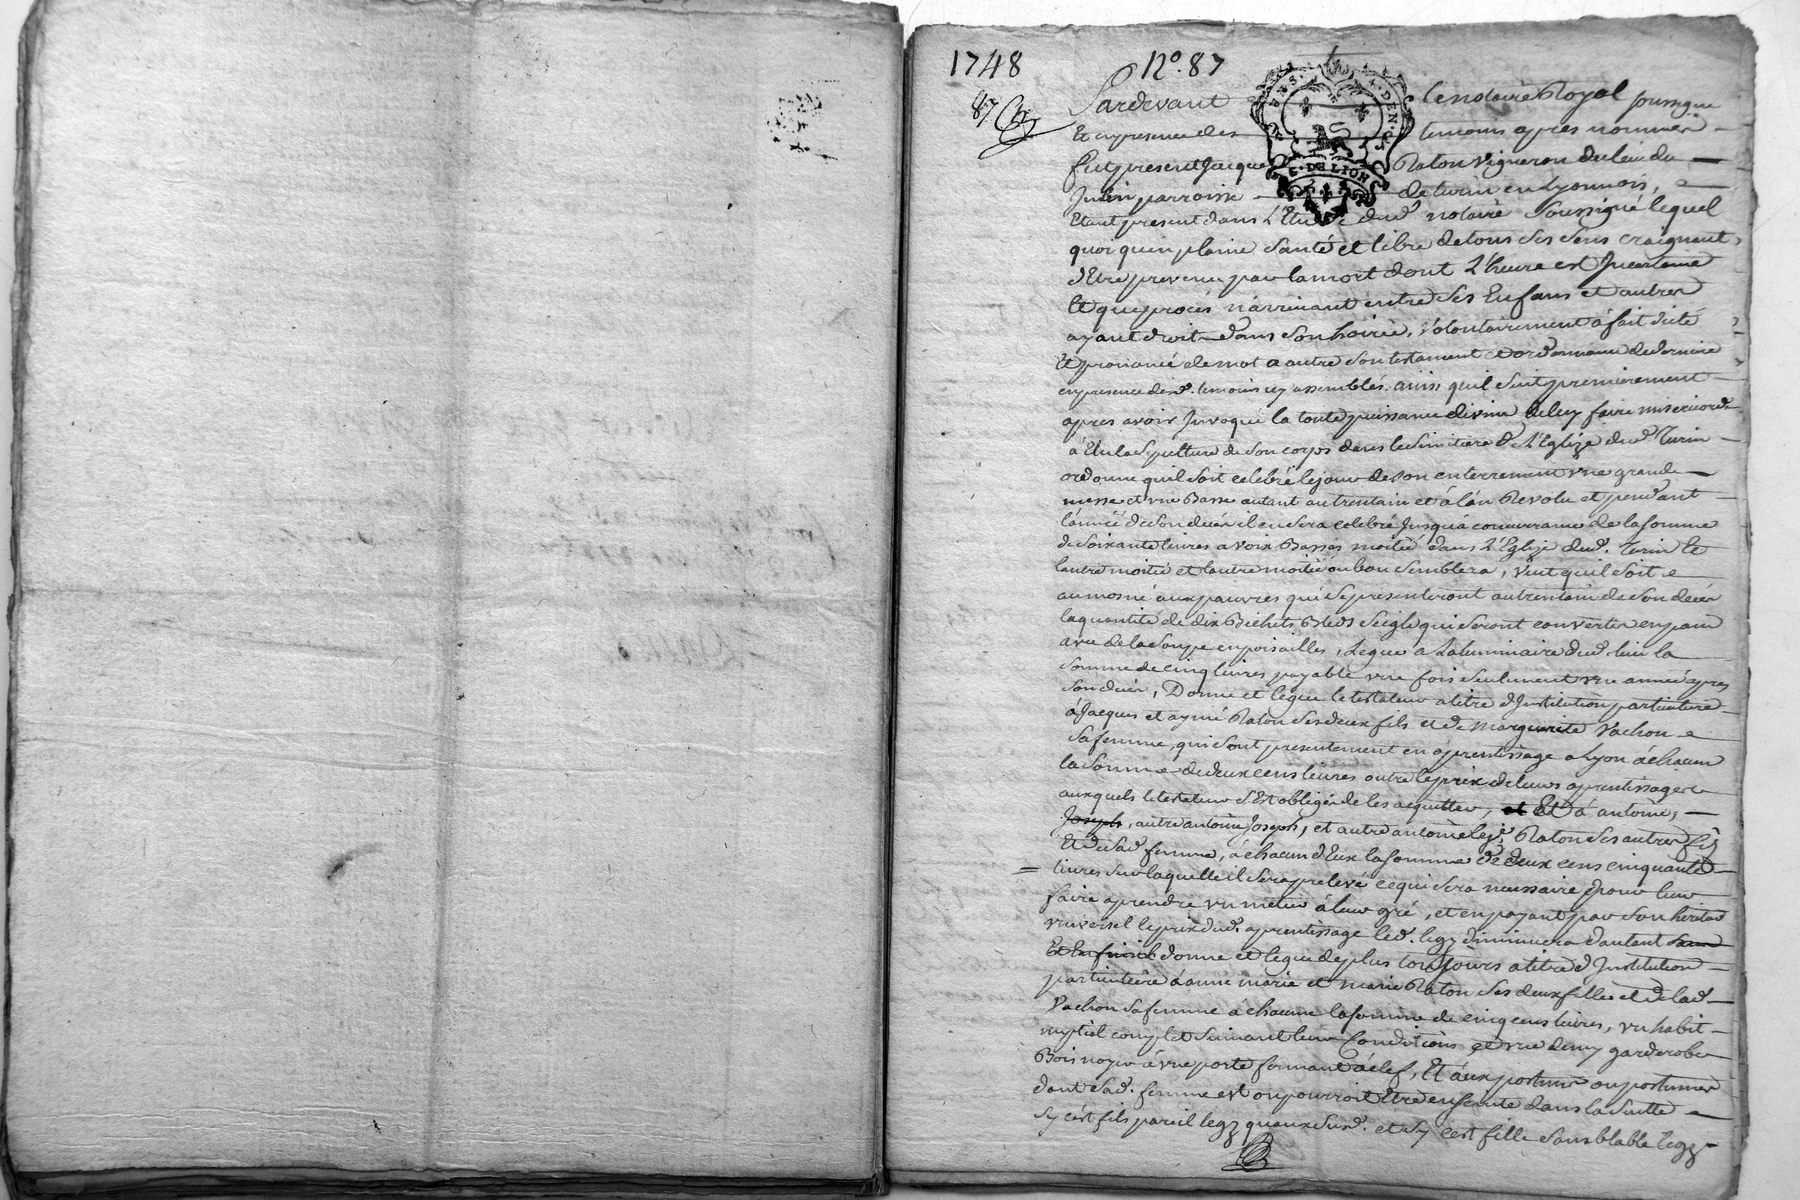 1748 No. 87
87
Pardevant le notaire Royal soussigne
Et en presence des temoins apres nommés
fut present Jacques Raton vigneron du lieu du
Juin parroisse de turin en Lyonnois,
Etant present dans L'Etude dud. notaire Soussigné lequel
quoi qu'en plaine Santé et libre de tous ses sens craignant
d'Etre prevenu par la mort dont L'heure est Incertaine
Et que procés n'arrivant entre ses Enfans et autres
ayant droit dans son hoirie, volontairement à fait dicté
Et prononcé de mot a autre son testament et ordonnance de derniere
en presence desd. temoins icy assemblés ainsi quil suit premierement
apres avoir Invoqué la toute puissance divine de luy faire misericorde
à Elu la Sepulture de son corps dans le Simitiere de L'Eglize dud. Turin
ordonne quil soit celebré le jour de son enterrement vne grande
messe et vne Basse autant au trentain et à l'an Revolu et pendant
l'année de son decés il en sera celebré Jusqu'a concurrance de la somme
de soixante livres a voix Basses moitié dans L'Eglize dud. Turin et
l'autre moitié et l'autre moitié ou bon semblera, veut quil soit
aumosné aux pauvres qui se presenteront au trentain de son decés
la quantité de dix Bichets Bled Seigle qui seront convertis en pain
avec de la soupe en poisailles, Legue a La luminaire dud. lieu la
somme de cinq livres payable vne fois seulement vne année apres
son decés, Donne et legue le testateur a titre d'Institution particuliere
à Jacques et aymé Raton ses deux fils et de marguerite Vachon
sa femme, qui sont presentement en aprentissage a Lyon à chacun
la somme de deux cens livres outre le prix de leurs aprentissages
auxquels le testateur s'Est obligé de les acquitter, et Et à antoine,
Joseph, autre antoine Joseph, et autre antoine le je. Raton ses autres fils
Et de sad. femme, à chacun d'Eux la somme de deux cens cinquante
= livres sur laquelle il sera prelevé ce qui sera necessaire pour leur
faire aprendre vn metier à leur gré, et en payant par son heritier
vniversel le prix dud. aprentissage led. legz diminuera d'autant
donne et legue de plus toujours a titre d'Institution
particuliere à anne marie et marie Raton ses deux filles et de lad.
Vachon sa femme a chacune la somme de cinq cens livres, vn habit
nuptiel complet suivant leur Condition et vne demy garderobe
Bois noyer à vne porte fermant à clef, Et aux postume ou postumes
dont sad. femme est ou pourroit Etre enceinte dans la suitte
sy c'est fils pareil legz quaux susd. et sy c'est fille semblable legz
G. DE LION